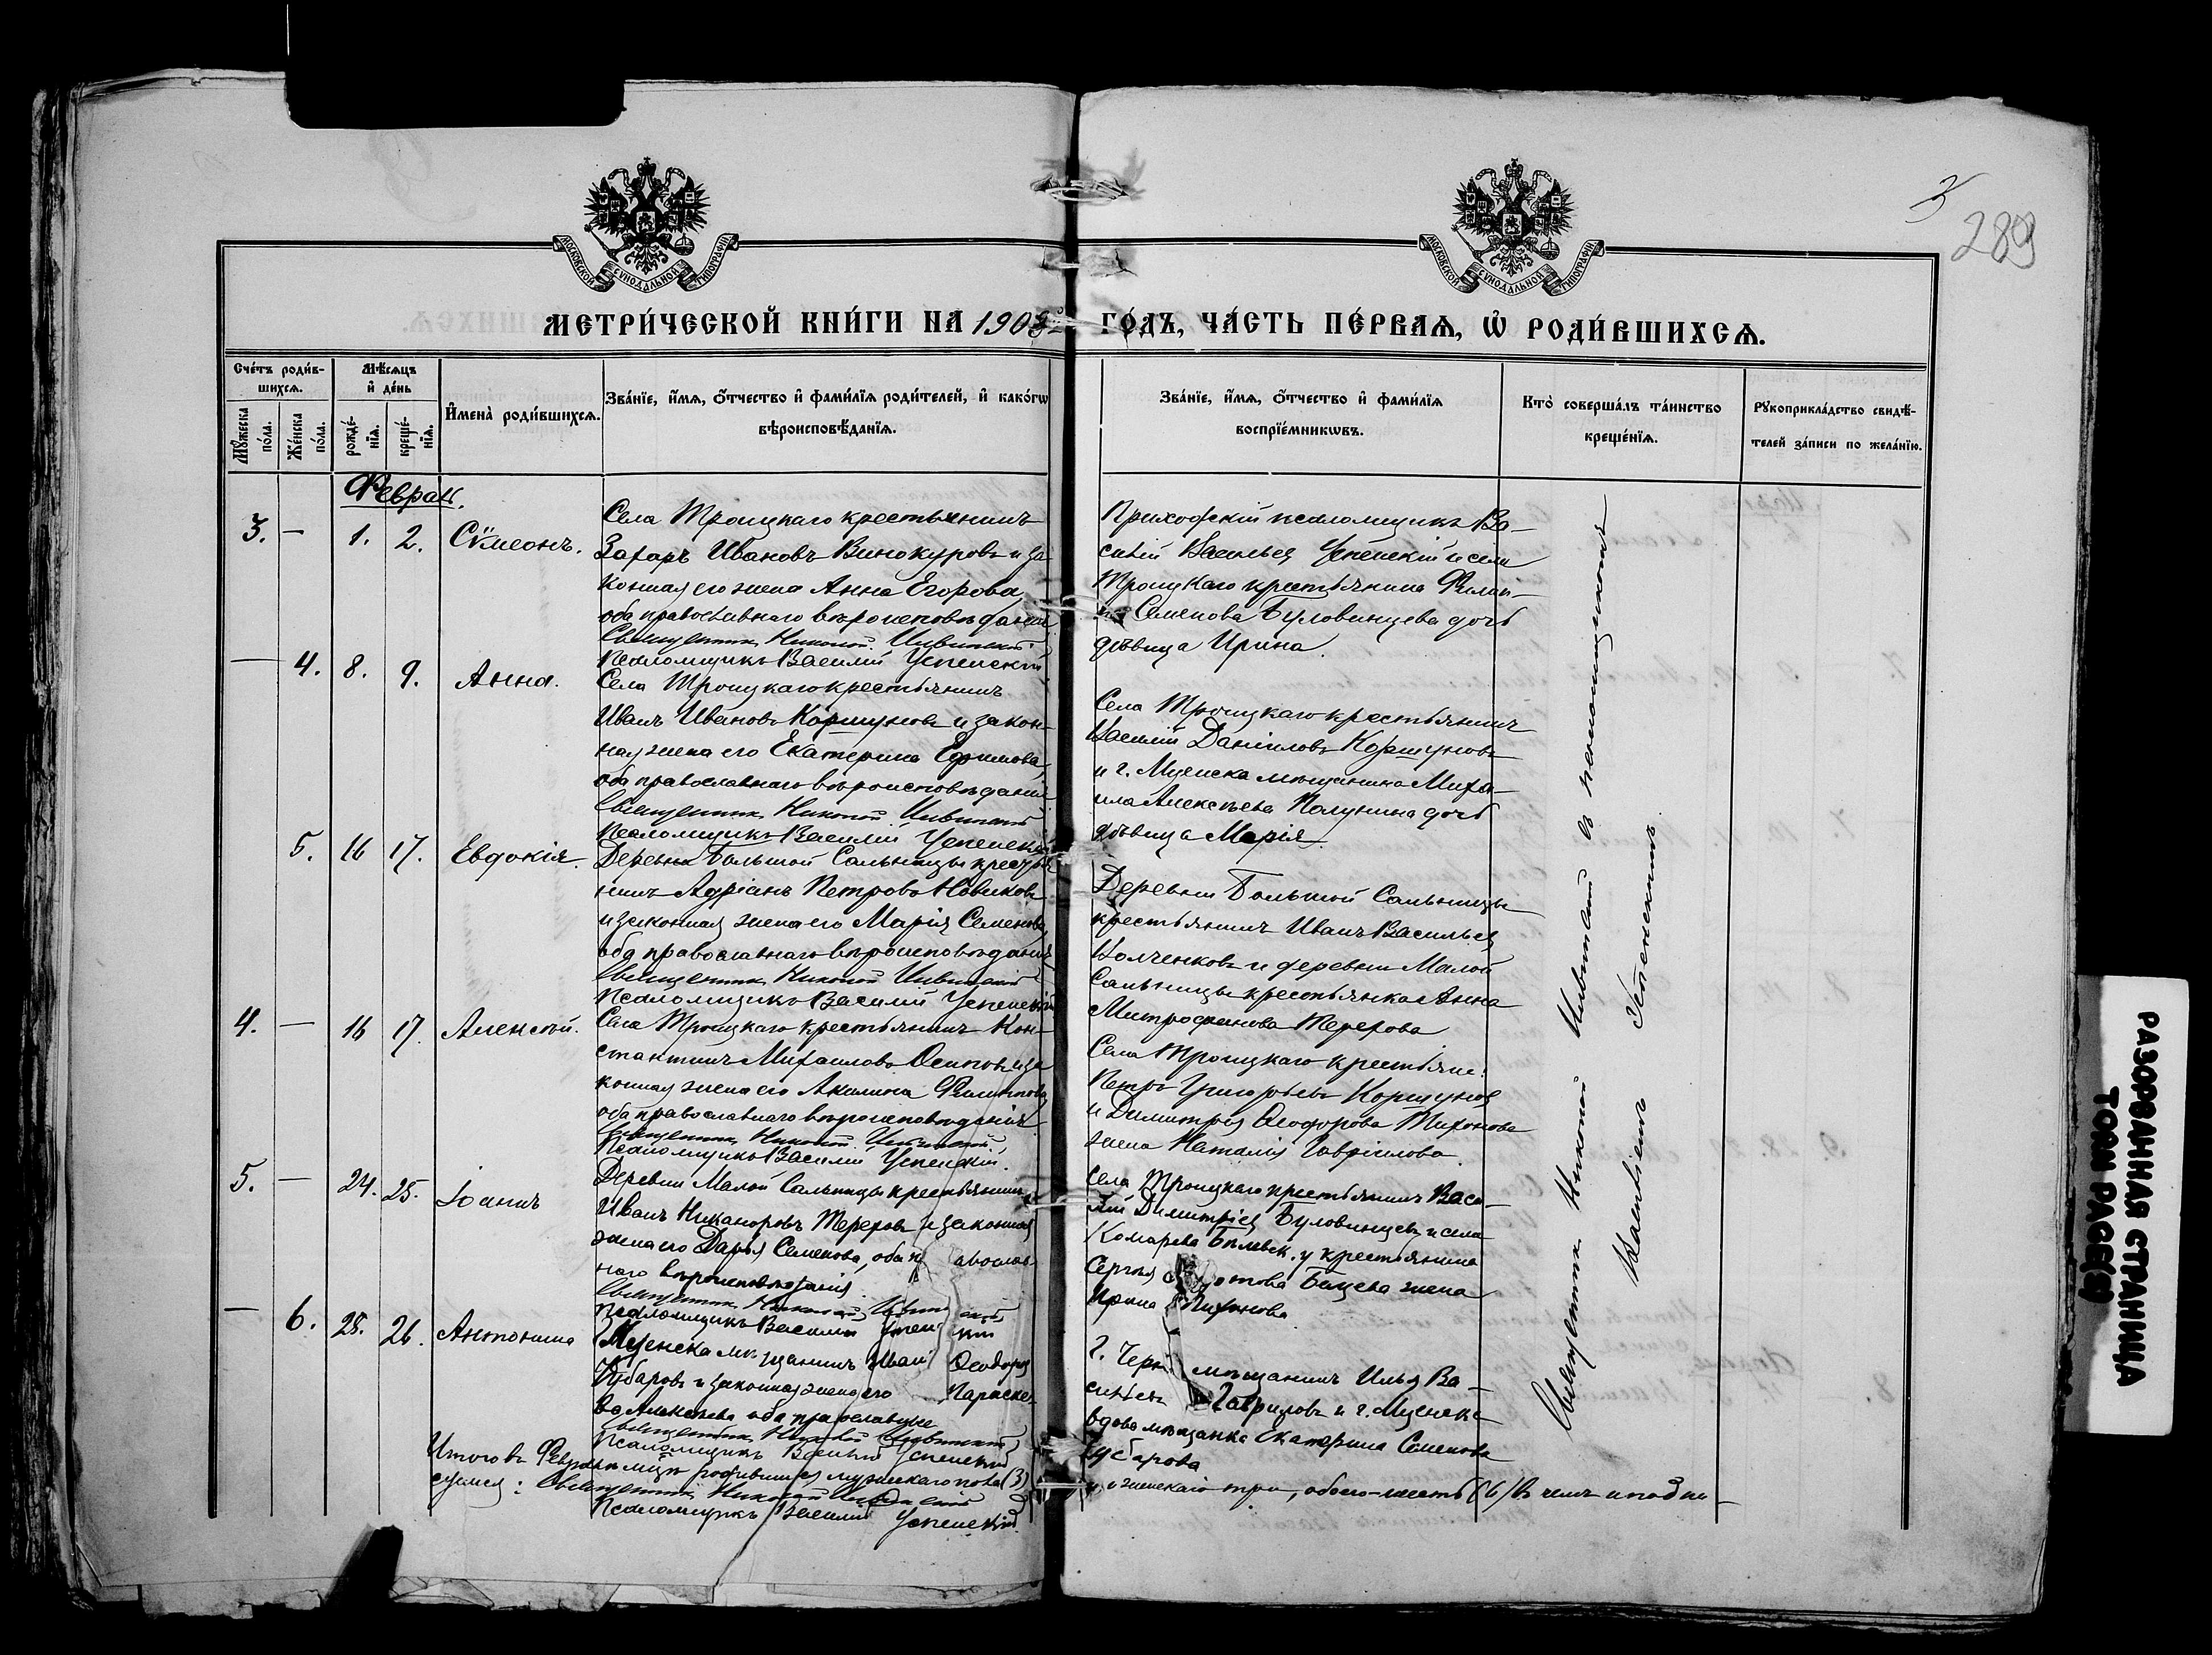 3
289
МОСКОВСКОЙ СѴНОДАЛЬНОЙ ТИПОГРАФІИ
МОСКОВСКОЙ СѴНОДАЛЬНОЙ ТИПОГРАФІИ
МЕТРИ́ЧЕСКОЙ КНИ́ГИ НА 1903 ГО́ДЪ, ЧА́СТЬ ПЕ́РВАѦ, Ѡ҆ РОДИ́ВШИХСѦ.
Сче́тъ роди́в-
шихсѧ.
Мꙋ́жеска по́ла.
Же́нска по́ла.
Мѣ́сѧцъ
и҆ де́нь
рожде́-
нїѧ.
креще́-
нїѧ.
И҆мена̀ роди́вшихсѧ.
Зва́нїе, и҆́мѧ, ѻ҆́тчество и҆ фами́лїѧ роди́телей, и҆ како́гѡ
вѣроисповѣ́данїѧ.
Зва́нїе, и҆́мѧ, ѻ҆́тчество и҆ фами́лїѧ
воспрїе́мникѡвъ.
Кто̀ соверша́лъ та́инство
креще́нїѧ.
Рꙋкоприкла́дство свидѣ́-
телей за́писи по жела́нїю.
Феврал.
3. — 1. 2. Сѷмеонъ.
Села Троицкаго крестьянинъ
Захаръ Ивановъ Винокуровъ и за
конная его жена Анна Егорова,
оба православнаго вѣроисповѣданія
Священникъ Николай
Псаломщикъ Василій Успенскій
Приходскій псаломщикъ Ва-
силій Васильев Успенскій и села
Троицкаго крестьянина Филип-
па Семенова Буловинцева дочь
дѣвица Ирина.
— 4. 8. 9. Анна.
Села Троицкаго крестьянинъ
Иванъ Ивановъ Коршуновъ и закон-
ная жена его Екатерина Ефимова,
оба православнаго вѣроисповѣданія
Священникъ Николай
Псаломщикъ Василій Успенскій
Села Троицкаго крестьянинъ
Василій Даніиловъ Коршуновъ
и г. Мценска мѣщанина Миха-
ила Алексѣева Полунина дочь
дѣвица Марія
5. 16 17. Евдокія.
Деревни Большой Сальницы кресть
нинъ Адріанъ Петровъ Новиковъ
и законная жена его Марія Семенова,
оба православнаго вѣроисповѣданія
Священникъ Николай
Псаломщикъ Василій Успенскій
Деревни Большой Сальницы
крестьянинъ Иванъ Васильев
Волченковъ и деревни Малой
Сальницы крестьянка Анна
Митрофанова Терехова
4. — 16 17. Алексѣй.
Села Троицкаго крестьянинъ Кон-
стантинъ Михаиловъ Осиповъ и за
конная жена его Акилина Филиппова,
оба православнаго вѣроисповѣданія
Священникъ Николай
Псаломщикъ Василій Успенскій.
Села Троицкаго крестьяне:
Петръ Григорьевъ Коршунов
и Димитрія Ѳеодорова Тихонова
жена Наталія Гавріилова.
5. — 24. 25. Іоаннъ
Деревни Малой Сальницы крестьянинъ
Иванъ Никаноровъ Тереховъ и законная
жена его Дарья Семенова, оба п авослав
наго вѣроисповѣданія.
Священникъ Николай
Псаломщикъ Василій Успен кій
Села Троицкаго крестьянинъ Васи-
лій Димитріев Буловинцевъ и села
Комарева Бѣлевск. у крестьянина
Сергѣя отова жена
Ирина
— 6. 25. 26. Антонина
Мценска мѣщанинъ Иван Ѳеодоров
и законная жена его Параске-
ва Алексѣева оба православные
Священникъ Николай
Псаломщикъ Василій Успенскій
г. Черни мѣщанинъ Илья Ва-
сильевъ Гавриловъ и г. Мценска
вдова мѣщанка Екатерина Семенова
Итого въ Февралѣ мцѣ родившихся мужескаго пола (3)
и женскаго три, обоего—шесть (6) Въ чемъ и подпи-
суемся: Священникъ Николай
Псаломщикъ Василій Успенскій.
Священникъ Николай съ псаломщикомъ
Василіемъ Успенскимъ.
РАЗОРВАННАЯ СТРАНИЦА
TORN PAGE(S)